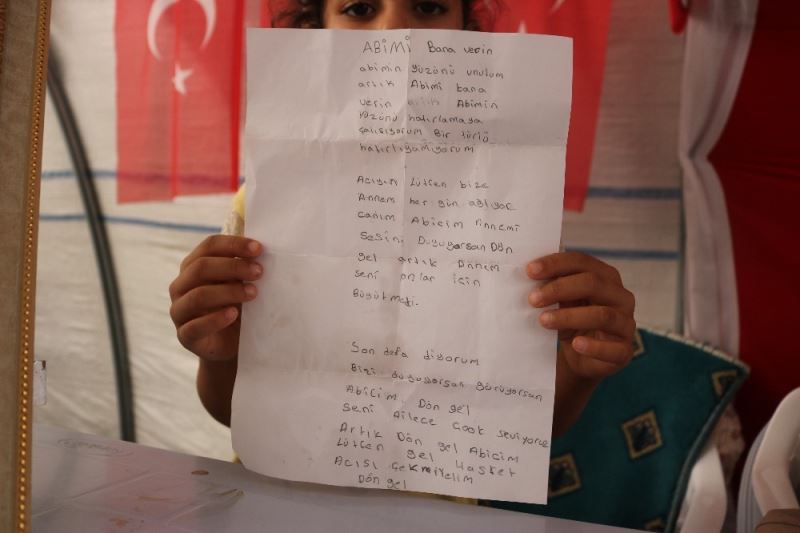 ABİMİ Bana verin
abimin yüzünü unutum
artık Abimi bana
verin artık Abimin
yüzünü hatırlamaya
çalışıyorum Bir türlü
hatırlıyamıyorum
Acıyın Lütfen bize
Annem her gün ağlıyor
canım Abicim Annemi
Sesini Duyuyorsan Dön
gel artık Annem
seni onlar için
Büyütmeti.
Son defa diyorum
Bizi duyuyorsan görüyorsan
Abicim Dön gel
Seni Ailece Çook seviyoruz
Artık Dön gel Abicim
Lütfen gel Hasret
Acısı çekmiyelim
Dön gel